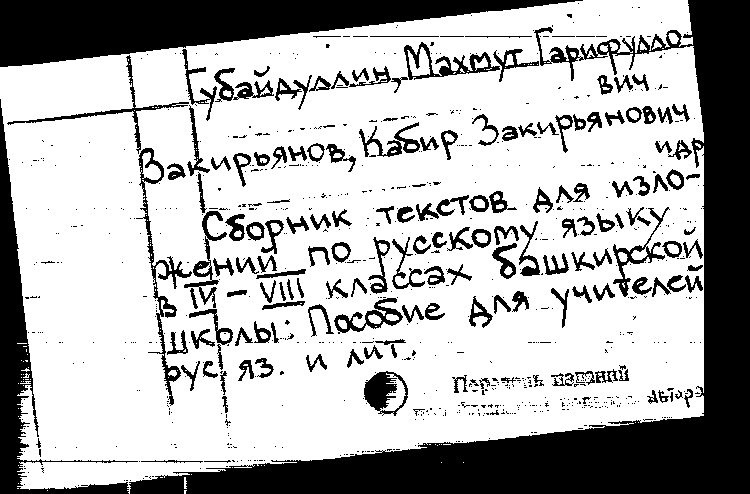 Губайдуллин, Махмут Гарифулло-
вич
Закирьянов, Кабир Закирьянович
и др
Сборник текстов для изло-
жений по русскому языку
в IV – VIII классах башкирской
школы: Пособие для учителей
рус. яз. и лит.
Перечень изданий
автора